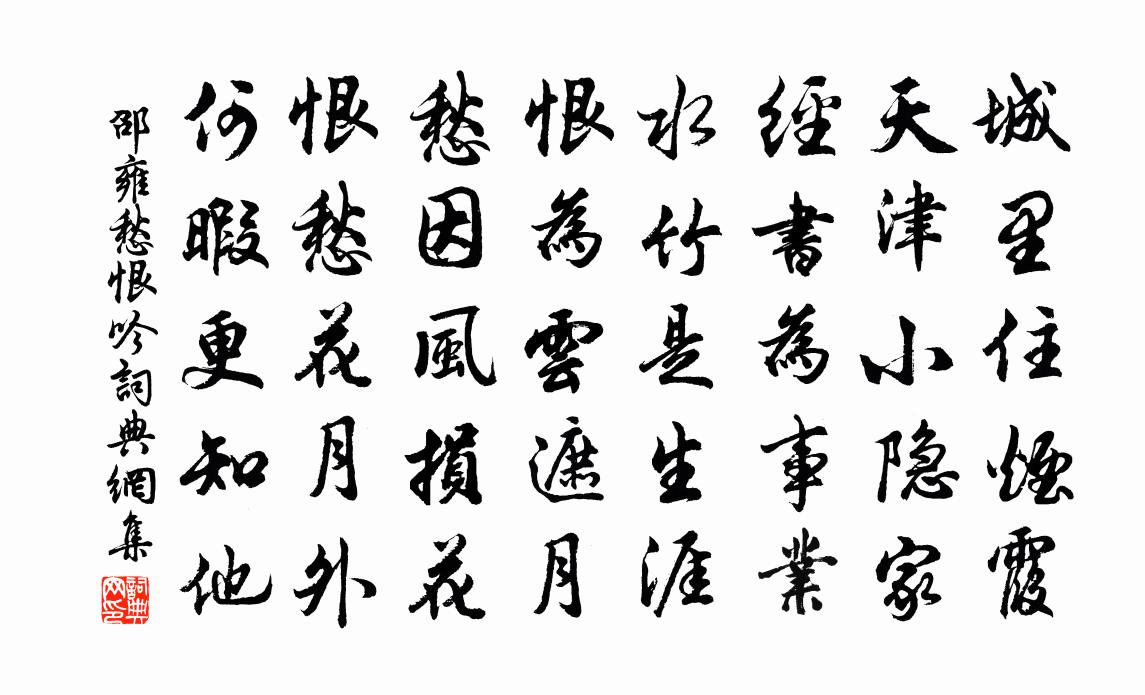 城里住煙霞
天津小隐家
經書為事業
水竹是生涯
恨為雲遮月
愁因風損花
恨愁花月外
何暇更知他
邵雍愁恨吟詞典網集
詞典网印